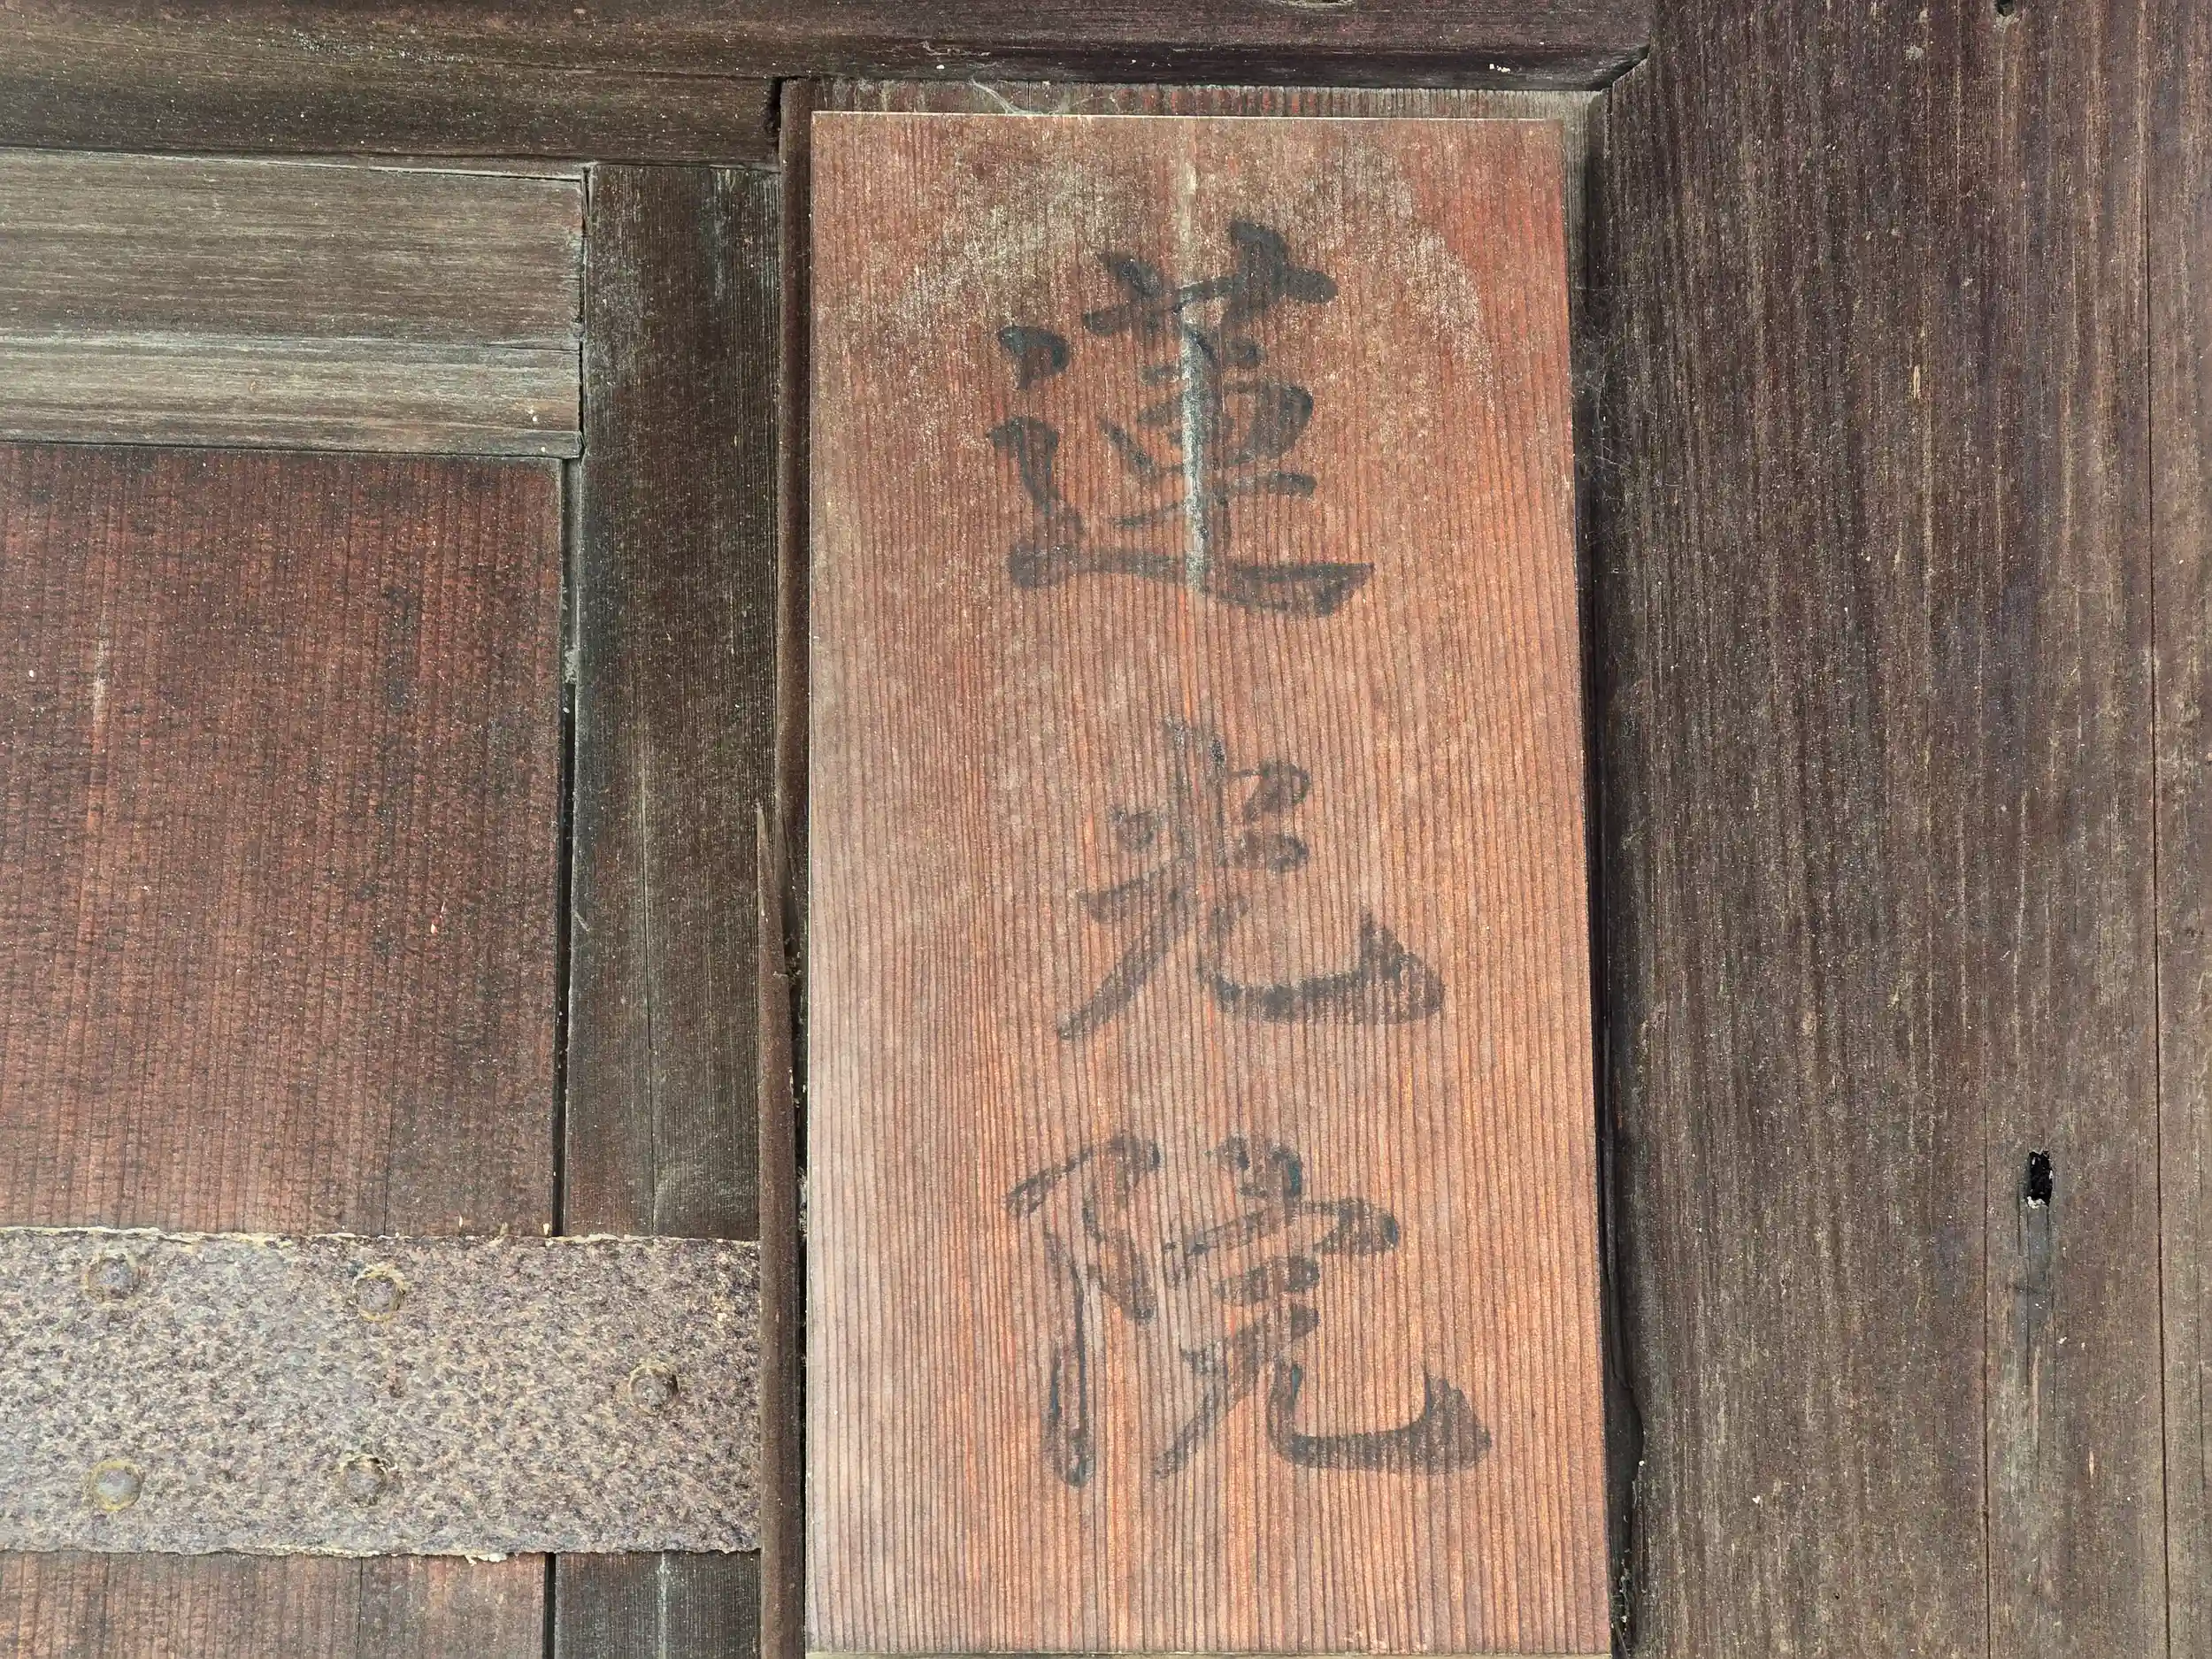 蓮光院